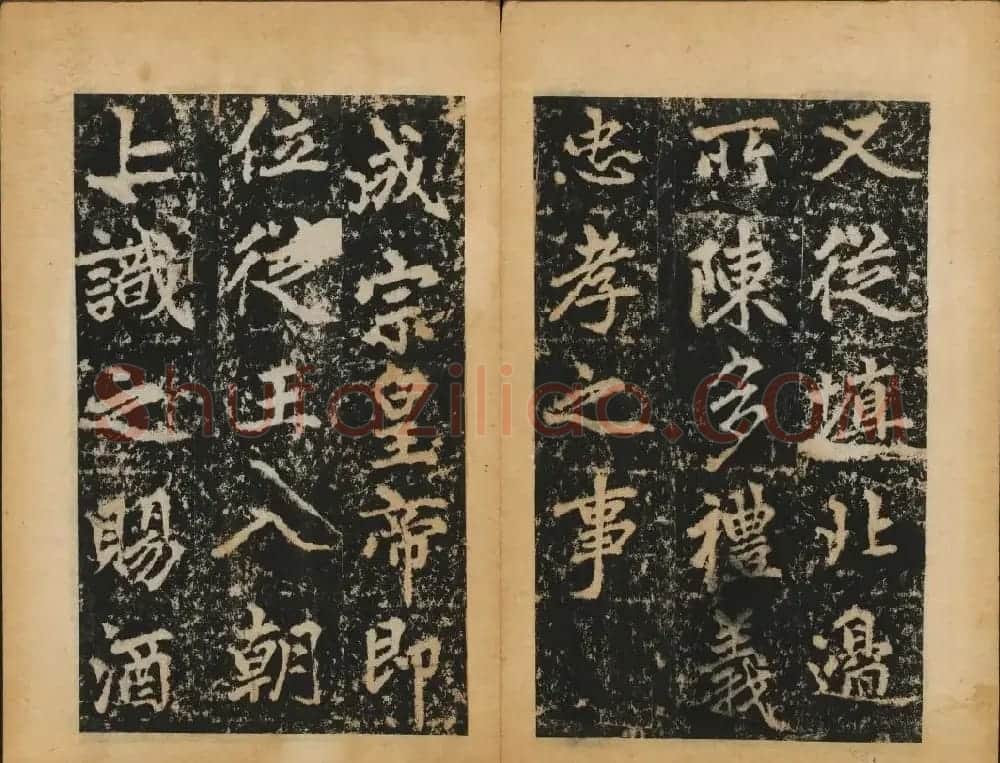 又從填北邊
所陳多禮義
忠孝之事
成宗皇帝即
位從王入朝
上識之賜酒
Shufaziliao.COM